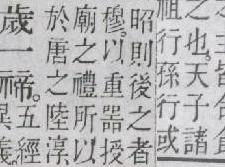 皆合食
之也。天子諸
祖行孫行或
昭則後之者
穆。以重器授
廟之禮所以
於唐之陸淳
歲一禘。五經
異義